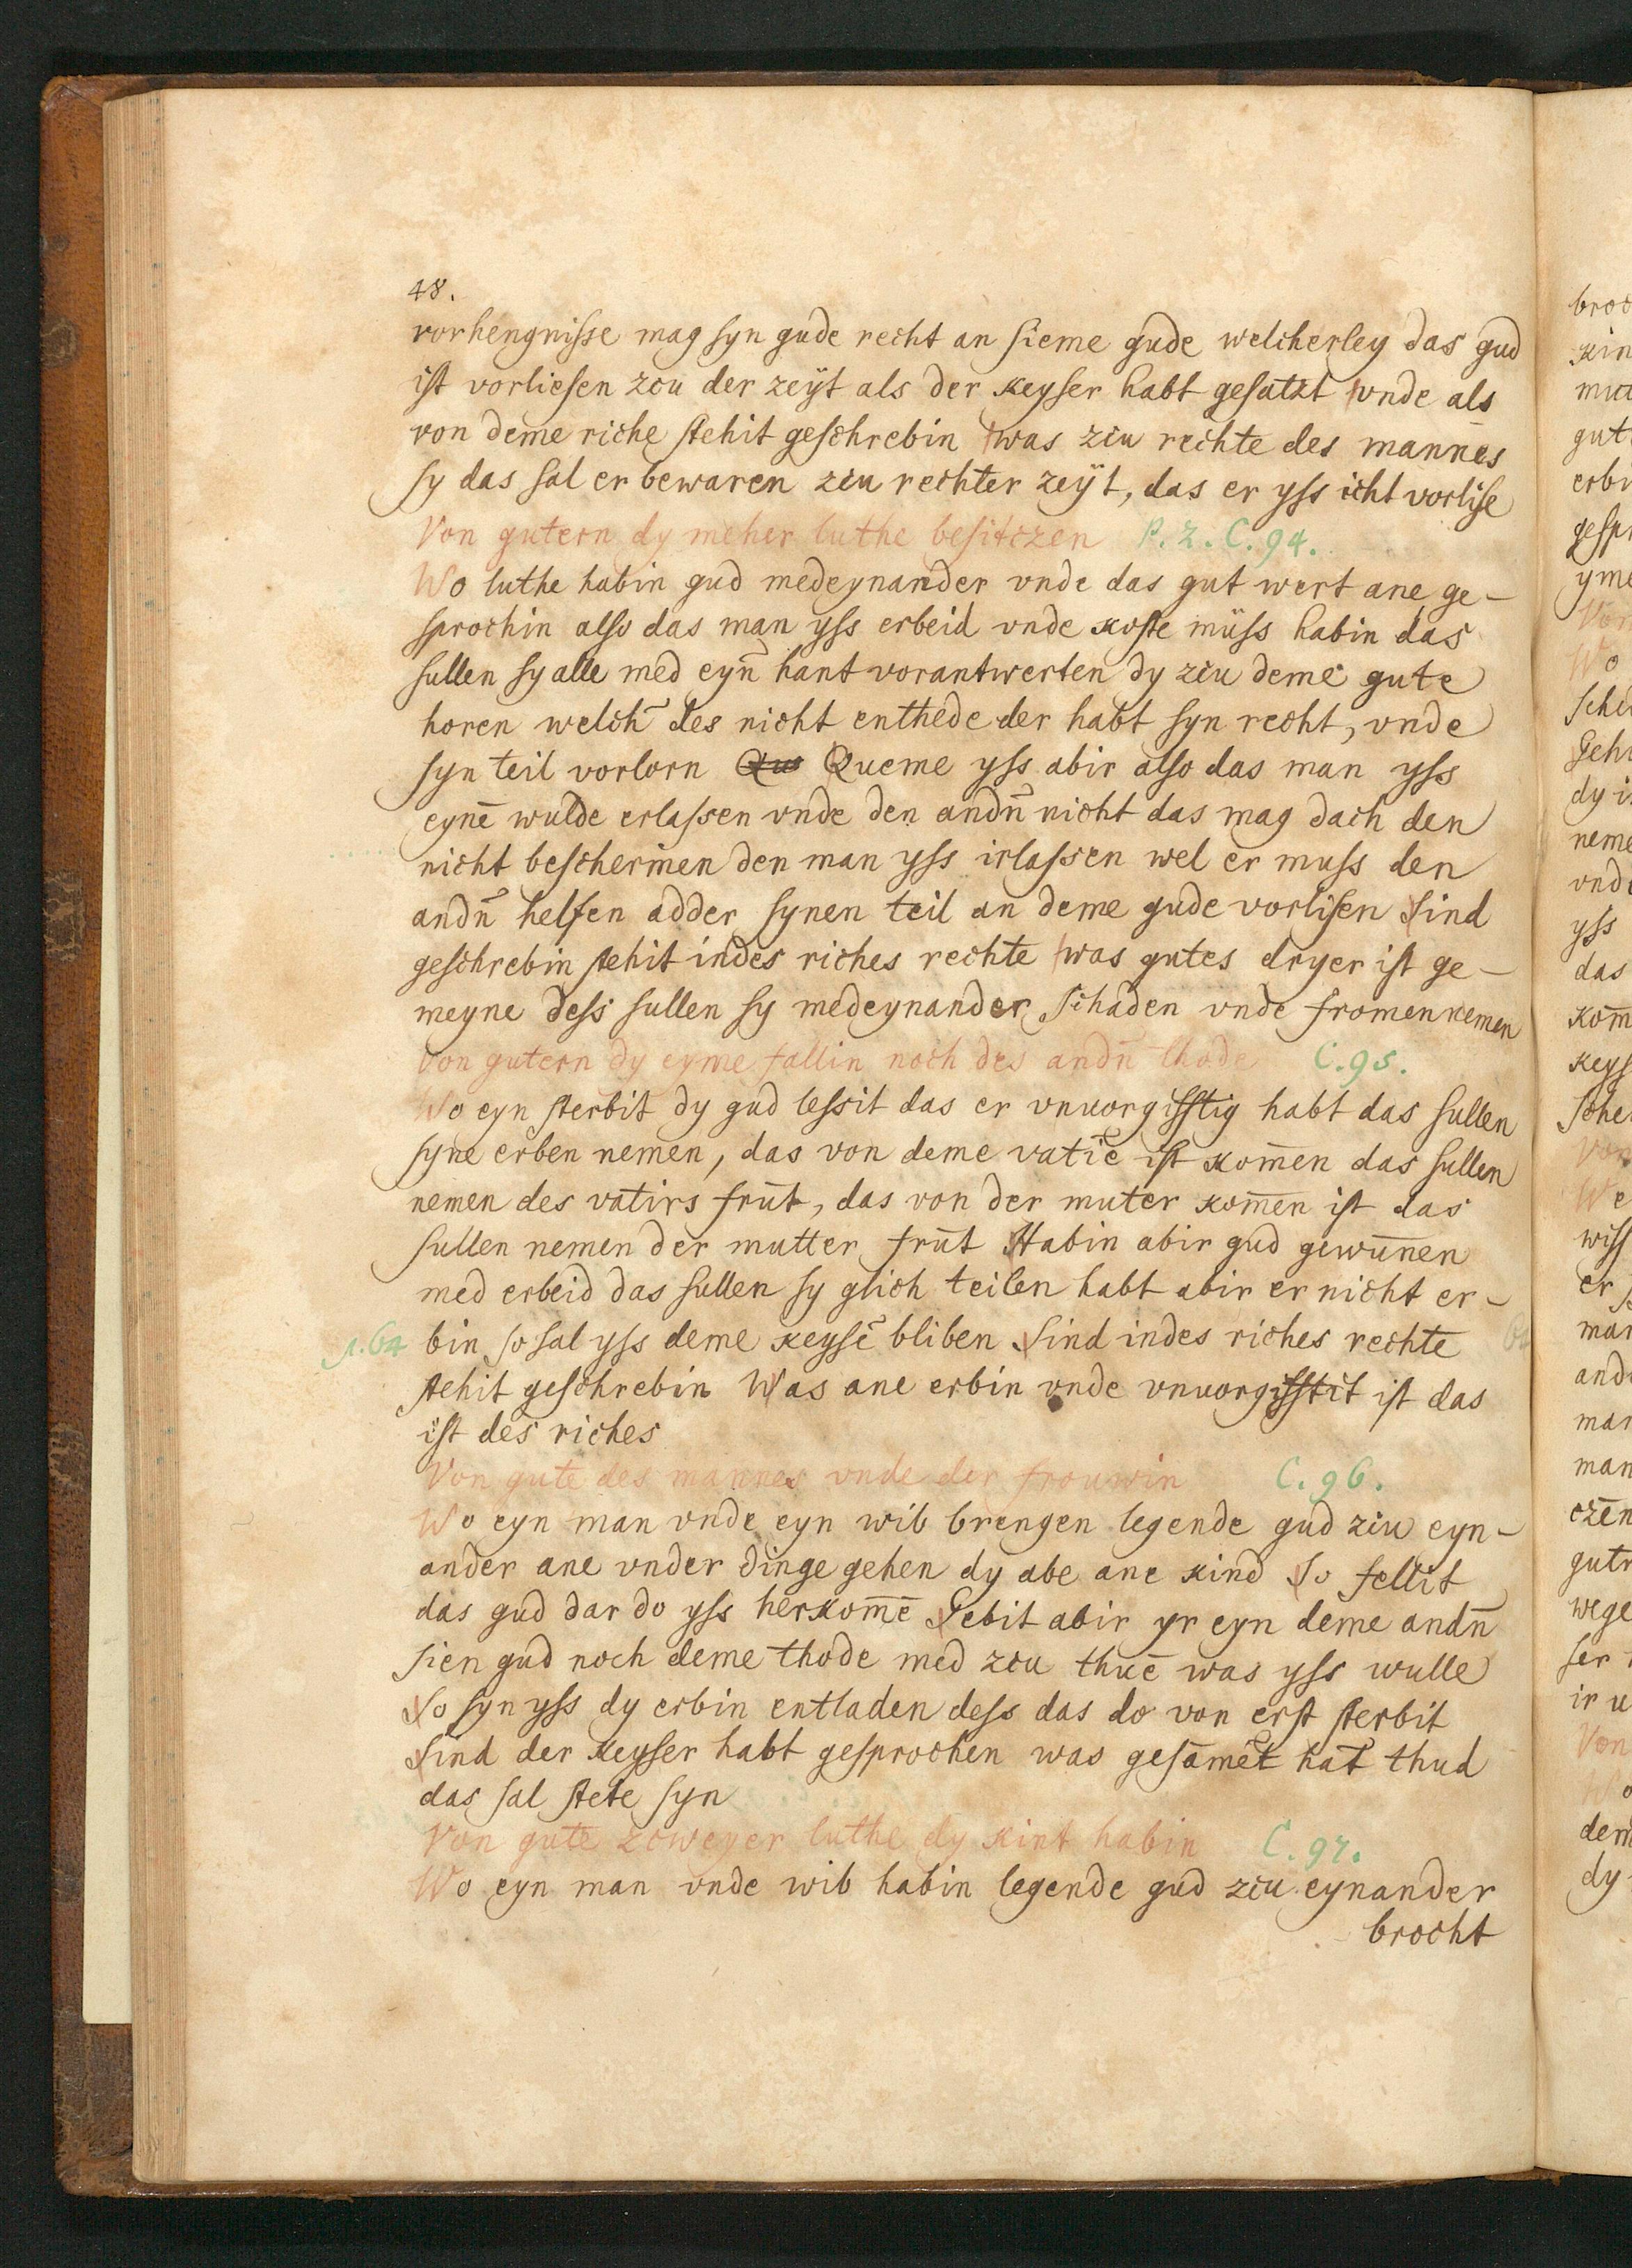 48.
vorhengnisse mag syn gude recht an sieme gude welcherley das gud
ist vorliesen zcu der zeÿt als der keyser habt gesatzt vnde als
von deme riche stehit geschrebin was zcu rechte des mannes
sy das sal er bewaren zcu rechter zeÿt, das er yss icht vorlise
Von gutern dy meher luthe besitczen P. 2. C. 94.
Wo luthe habin gud medeynander vnde das gut wert ane ge-
sprochin also das man yss erbeid vnde koste müss habin das
sullen sy alle med eyn̄ hant vorantwerten dy zcu deme gute
horen welch̄ des nicht enthede der habt syn recht, vnde
syn teil vorlorn Qus Queme yss abir also das man yss
eynē wulde erlassen vnde den andn̄ nicht das mag dach den
nicht beschermen den man yss irlassen wel er muss den
andn̄ helfen adder synen teil an deme gude vorlisen Sind
geschrebin stehit indes riches rechte was gutes dryer ist ge-
meyne dess sullen sy medeynander schaden vnde fromen nemen
Von gutern dy eyme fallin noch des andn̄ thode C. 95.
Wo eyn sterbit dy gud lessit das er vnuorgifftig habt das sullen
syne erben nemen, das von deme vatīe ist kom̄en das sullen
nemen des vatirs frūt, das von der muter kom̄en ist das
sullen nemen der mutter frūt Habin abir gud gewun̄en
med erbeid das sullen sy glich teilen habt abir er nicht er-
A. 64 bin so sal yss deme keysē bliben Sind indes riches rechte
stehit geschrebin Was ane erbin vnde vnuorgifftit ist das
ist des riches
Von gute des mannes vnde der frouwin C. 96.
Wo eyn man vnde eyn wib brengen legende gud zcu eyn-
ander ane vnder dinge gehen dy abe ane kind So fellit
das gud dar do yss herkom̄ē Gebit abir yr eyn deme andn̄
sien gud noch deme thode med zcu thuē was yss wulle
So syn yss dy erbin entladen dess das do von erst sterbit
Sind der keyser habt gesprochen was gesāmēt hāt thud
das sal stete syn
Von gute zcweyer luthe dy kint habin C. 97.
Wo eyn man vnde wib habin legende gud zcu eynander
brocht